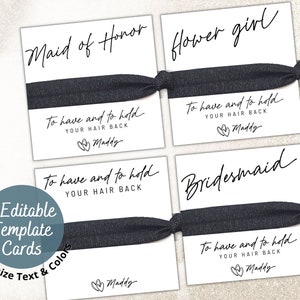 Maid of Honor
to have and to hold
YOUR HAIR BACK
Maddy
flower girl
to have and to hold
YOUR HAIR BACK
Maddy
to have and to hold
YOUR HAIR BACK
Maddy
Bridesmaid
to have and to hold
YOUR HAIR BACK
Maddy
Editable
Template
Cards
ize Text & Colors